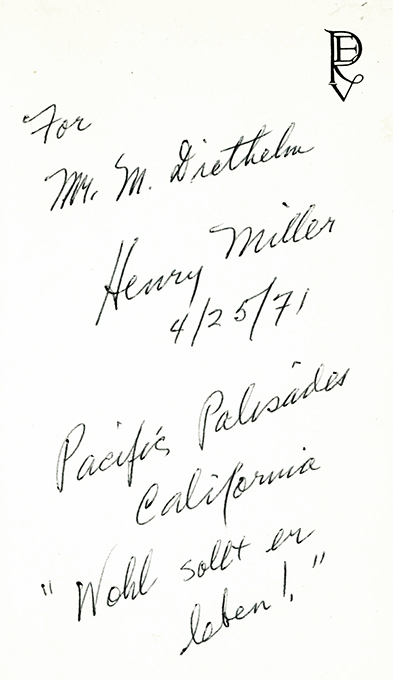 For
Mr. M. Diethelm
Henry Miller
4/25/71
Pacific Palisades
California
"Wohl sollt er
leben!."